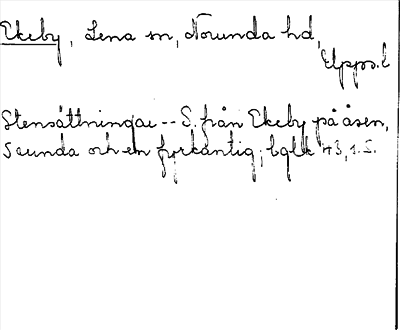 Ekeby, Lena sn, Norunda hd,
Upps. l
Stensättningar -- S. från Ekeby på åsen,
5 runda och en fyrkantig; bglk 43, s.